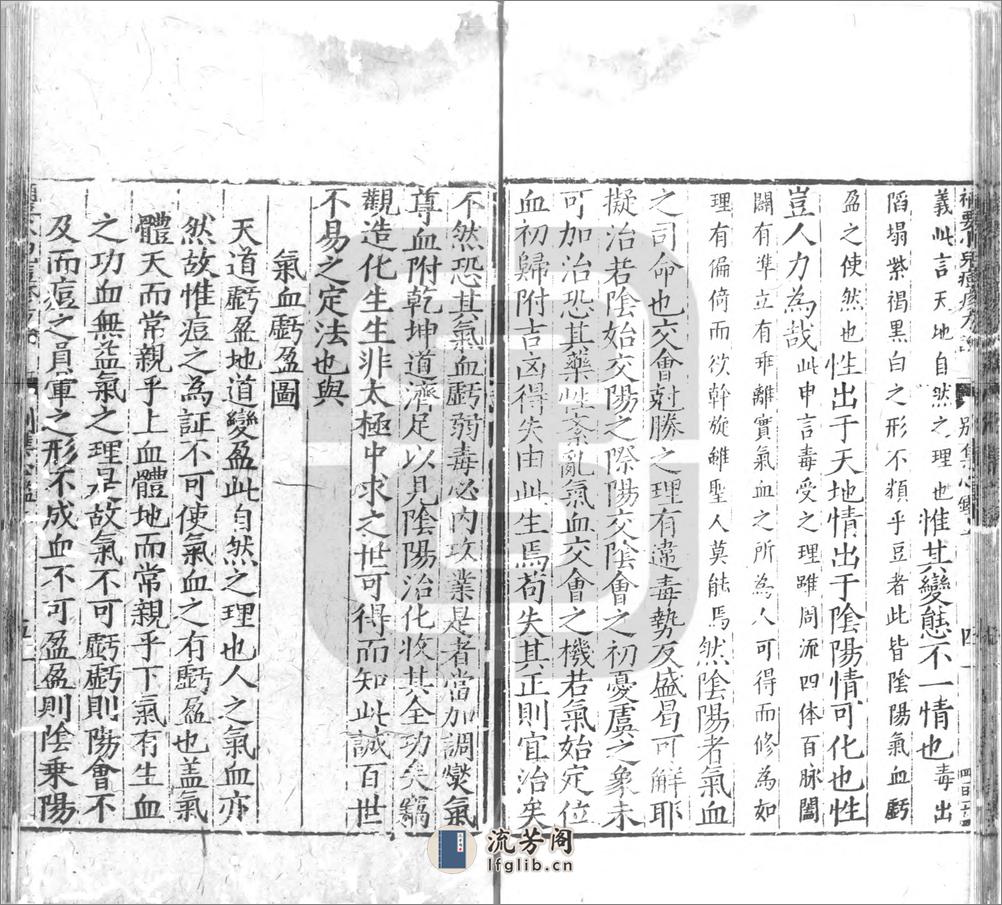 義此言天地自然之理也惟其變態不一情也毒出
陷塌紫褐黑白之形不類乎豆者此皆陰陽氣血虧
盈之使然也性出于天地情出于陰陽情可化也性
豈人力為哉此申言毒受之理雖周流四体百脉闔
闢有準立有乖離實氣血之所為人可得而修為如
理有偏倚而欲斡旋雖聖人莫能焉然陰陽者氣血
之司命也交會尅勝之理有違毒勢反盛曷可解耶
擬治若陰始交陽之際陽交陰會之初憂虞之象未
可加治恐其藥性紊亂氣血交會之機若氣始定位
血初歸附吉凶得失由此生焉苟失其正則宜治矣
不然恐其氣血虧弱毒必内攻業是者當加調燮氣
尊血附乾坤道濟足以見陰陽治化收其全功矣竊
觀造化生生非太極中求之世可得而知此誠百世
不易之定法也與
氣血虧盈圖
天道虧盈地道變盈此自然之理也人之氣血亦
然故惟痘之為証不可使氣血之有虧盈也盖氣
體天而常親乎上血體地而常親乎下氣有生血
之功血無益氣之理是故氣不可虧虧則陽會不
及而痘之員暈之形不成血不可盈盈則陰乘陽
別集心鑑
流芳阁
lfglib.cn